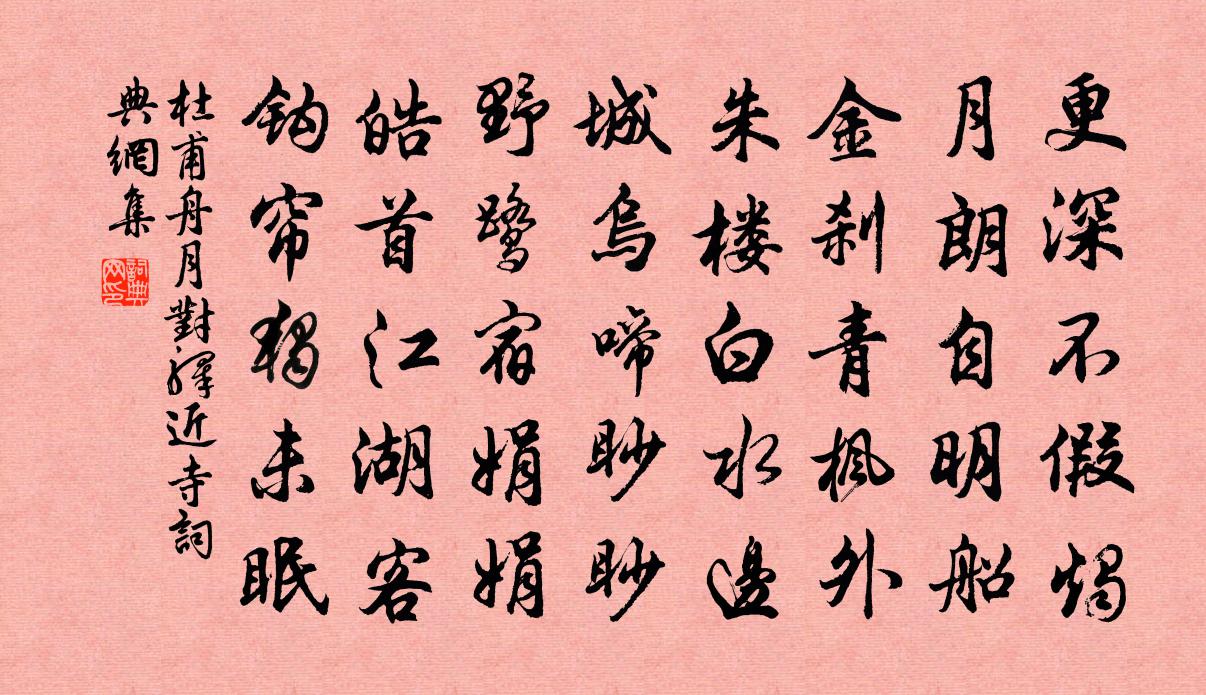 更深不假燭
月朗自明船
金刹青楓外
朱楼白水邊
城烏啼眇眇
野鹭宿娟娟
皓首江湖客
钩帘独未眠
杜甫舟月對驛近寺詞
典網集
詞典网印